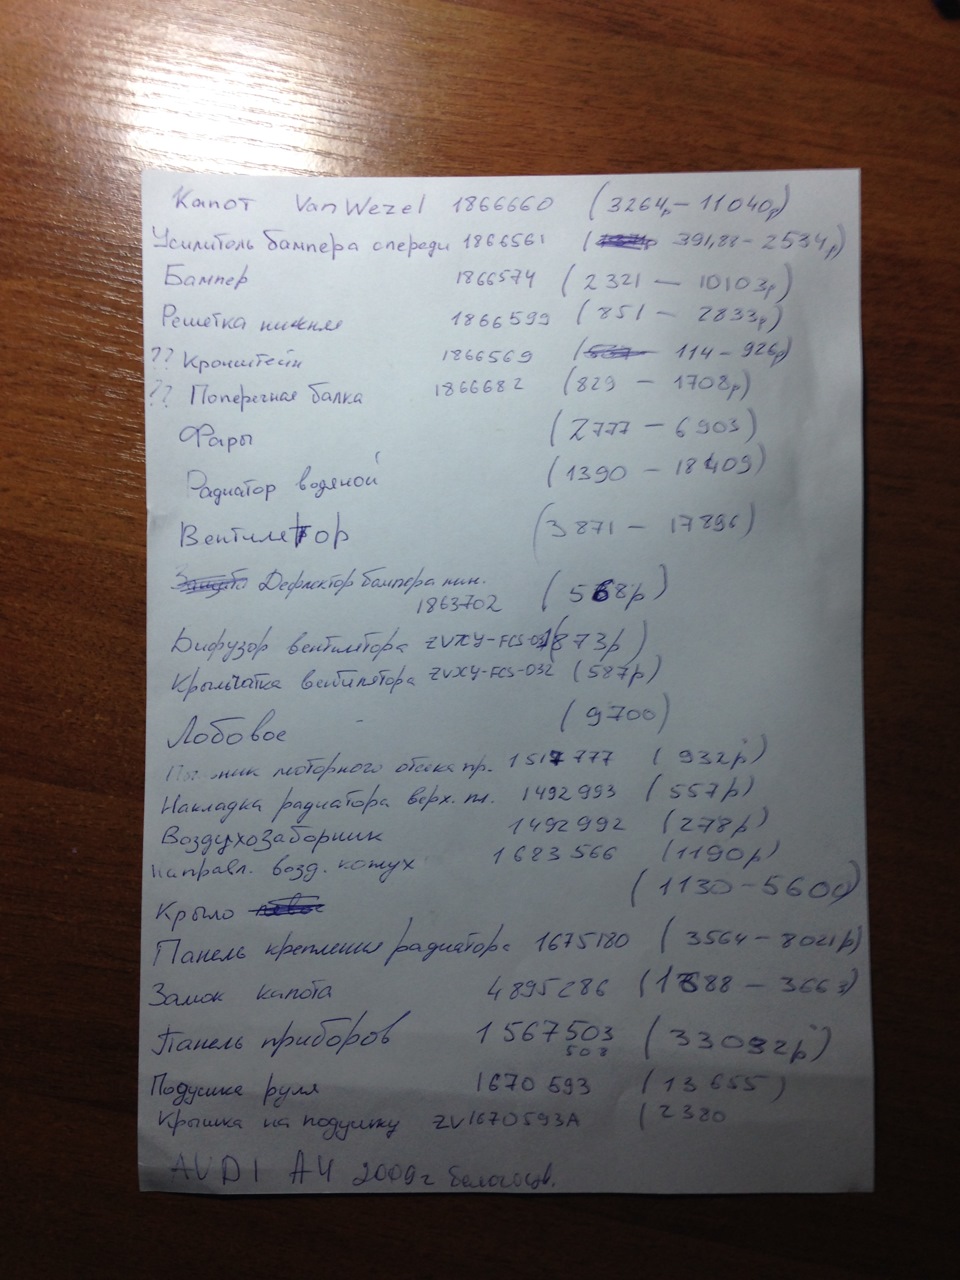 Капот VanWezel 1866660 (3264р-11040р)
Усилитель бампера спереди 1866561 ( 391,88-2534р)
Бампер 1866574 (2321 - 10103р)
Решетка нижняя 1866599 (851 - 2833р)
?? Кронштейн 1866569 ( 114-926р)
?? Поперечная балка 1866682 (829 - 1708р)
Фары (2777 - 6903)
Радиатор водяной (1390 - 18409)
Вентилятор (3871 - 17896)
Дефлектор бампера ниж.
1863702 (568р)
Дифузор вентилятора (873р)
Крыльчатка вентилятора ZVXY-FCS-032 (587р)
Лобовое (9700)
моторного отсека пр. 1517777 (932р)
Накладка радиатора верх. пл. 1492993 (557р)
Воздухозаборник 1492992 (278р)
направл. возд. кожух 1683566 (1190р)
Крыло (1130-5600)
Панель крепления радиатора 1675180 (3564-8021р)
Замок капота 4895286 (1688 - 3663)
Панель приборов 1567503 (33092р)
508
Подушка руля 1670593 (13655)
Крышка на подушку ZV1670593A (2380
AUDI A4 2009г